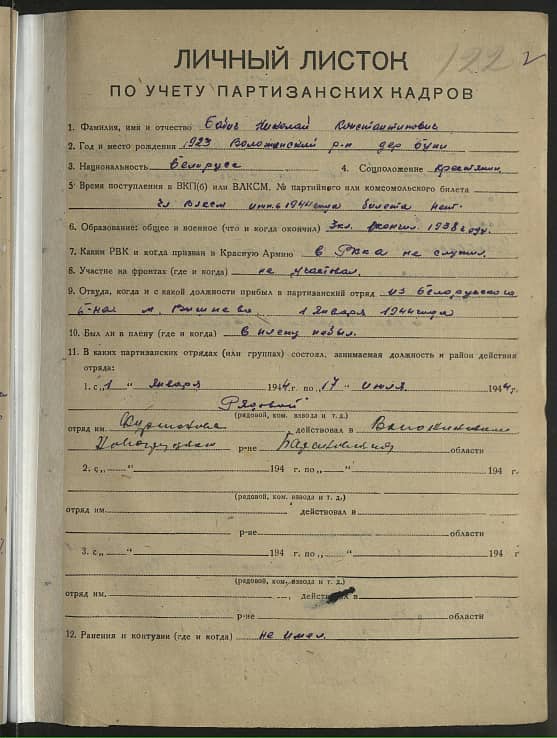 122
ЛИЧНЫЙ ЛИСТОК
ПО УЧЕТУ ПАРТИЗАНСКИХ КАДРОВ
1. Фамилия, имя и отчество Бабич Николай Константинович
2. Год и место рождения 1923 Воложинский р-н дер
3. Национальность белорусс 4. Соцположение крестьянин
5. Время поступления в ВКП(б) или ВЛКСМ, № партийного или комсомольского билета
чл ВЛКСМ 1944 года билета нет.
6. Образование: общее и военное (что и когда окончил) 3кл. окончил 1938 году.
7. Каким РВК и когда призван в Красную Армию в РККА не служил.
8. Участие на фронтах (где и когда) не участвовал.
9. Откуда, когда и с какой должности прибыл в партизанский отряд из Белорусского
б-на м. Вишнево 1 января 1944 года
10. Был ли в плену (где и когда) в плену не был.
11. В каких партизанских отрядах (или группах) состоял, занимаемая должность и район действия
отряда:
1. с „1 " января 1944 г. по „17 " июля 1944 г.
Рядовой
(рядовой, ком. взвода и т. д.)
отряд им. действовал в Воложинском
р-не Барановичской области
2. с „ " 194 г. по „ " 194 г.
(рядовой, ком. взвода и т. д.)
отряд им. действовал в
р-не области
3. с „ " 194 г. по „ " 194 г
(рядовой, ком. взвода и т. д.)
отряд им. , действовал в
р-не области
12. Ранения и контузии (где и когда) не имел.